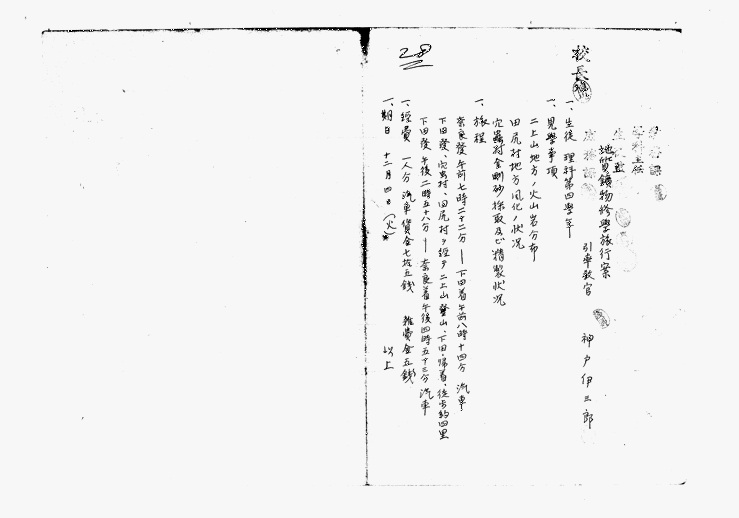 28
校長
教務課
学科主任
生徒監
庶務課
地質鑛物修學旅行案
引率教官　神戸伊三郎
一、生徒　理科第四學年
一、見學事項
二上山地方ノ火山岩分布
田尻村地方風化ノ状況
穴蟲村金剛砂採取及ビ精製状況
一、旅程
奈良發午前七時二十二分―下田着午前八時十四分　汽車
下田發、穴虫村、田尻村ヲ經テ二上山登山、下田帰着、徒歩約四里
下田發午後二時五十八分―奈良着午後四時五十三分　汽車
一、經費　一人分　汽車賃金七拾五錢　雜費金五錢
一、期日　十二月四日（火）
以上